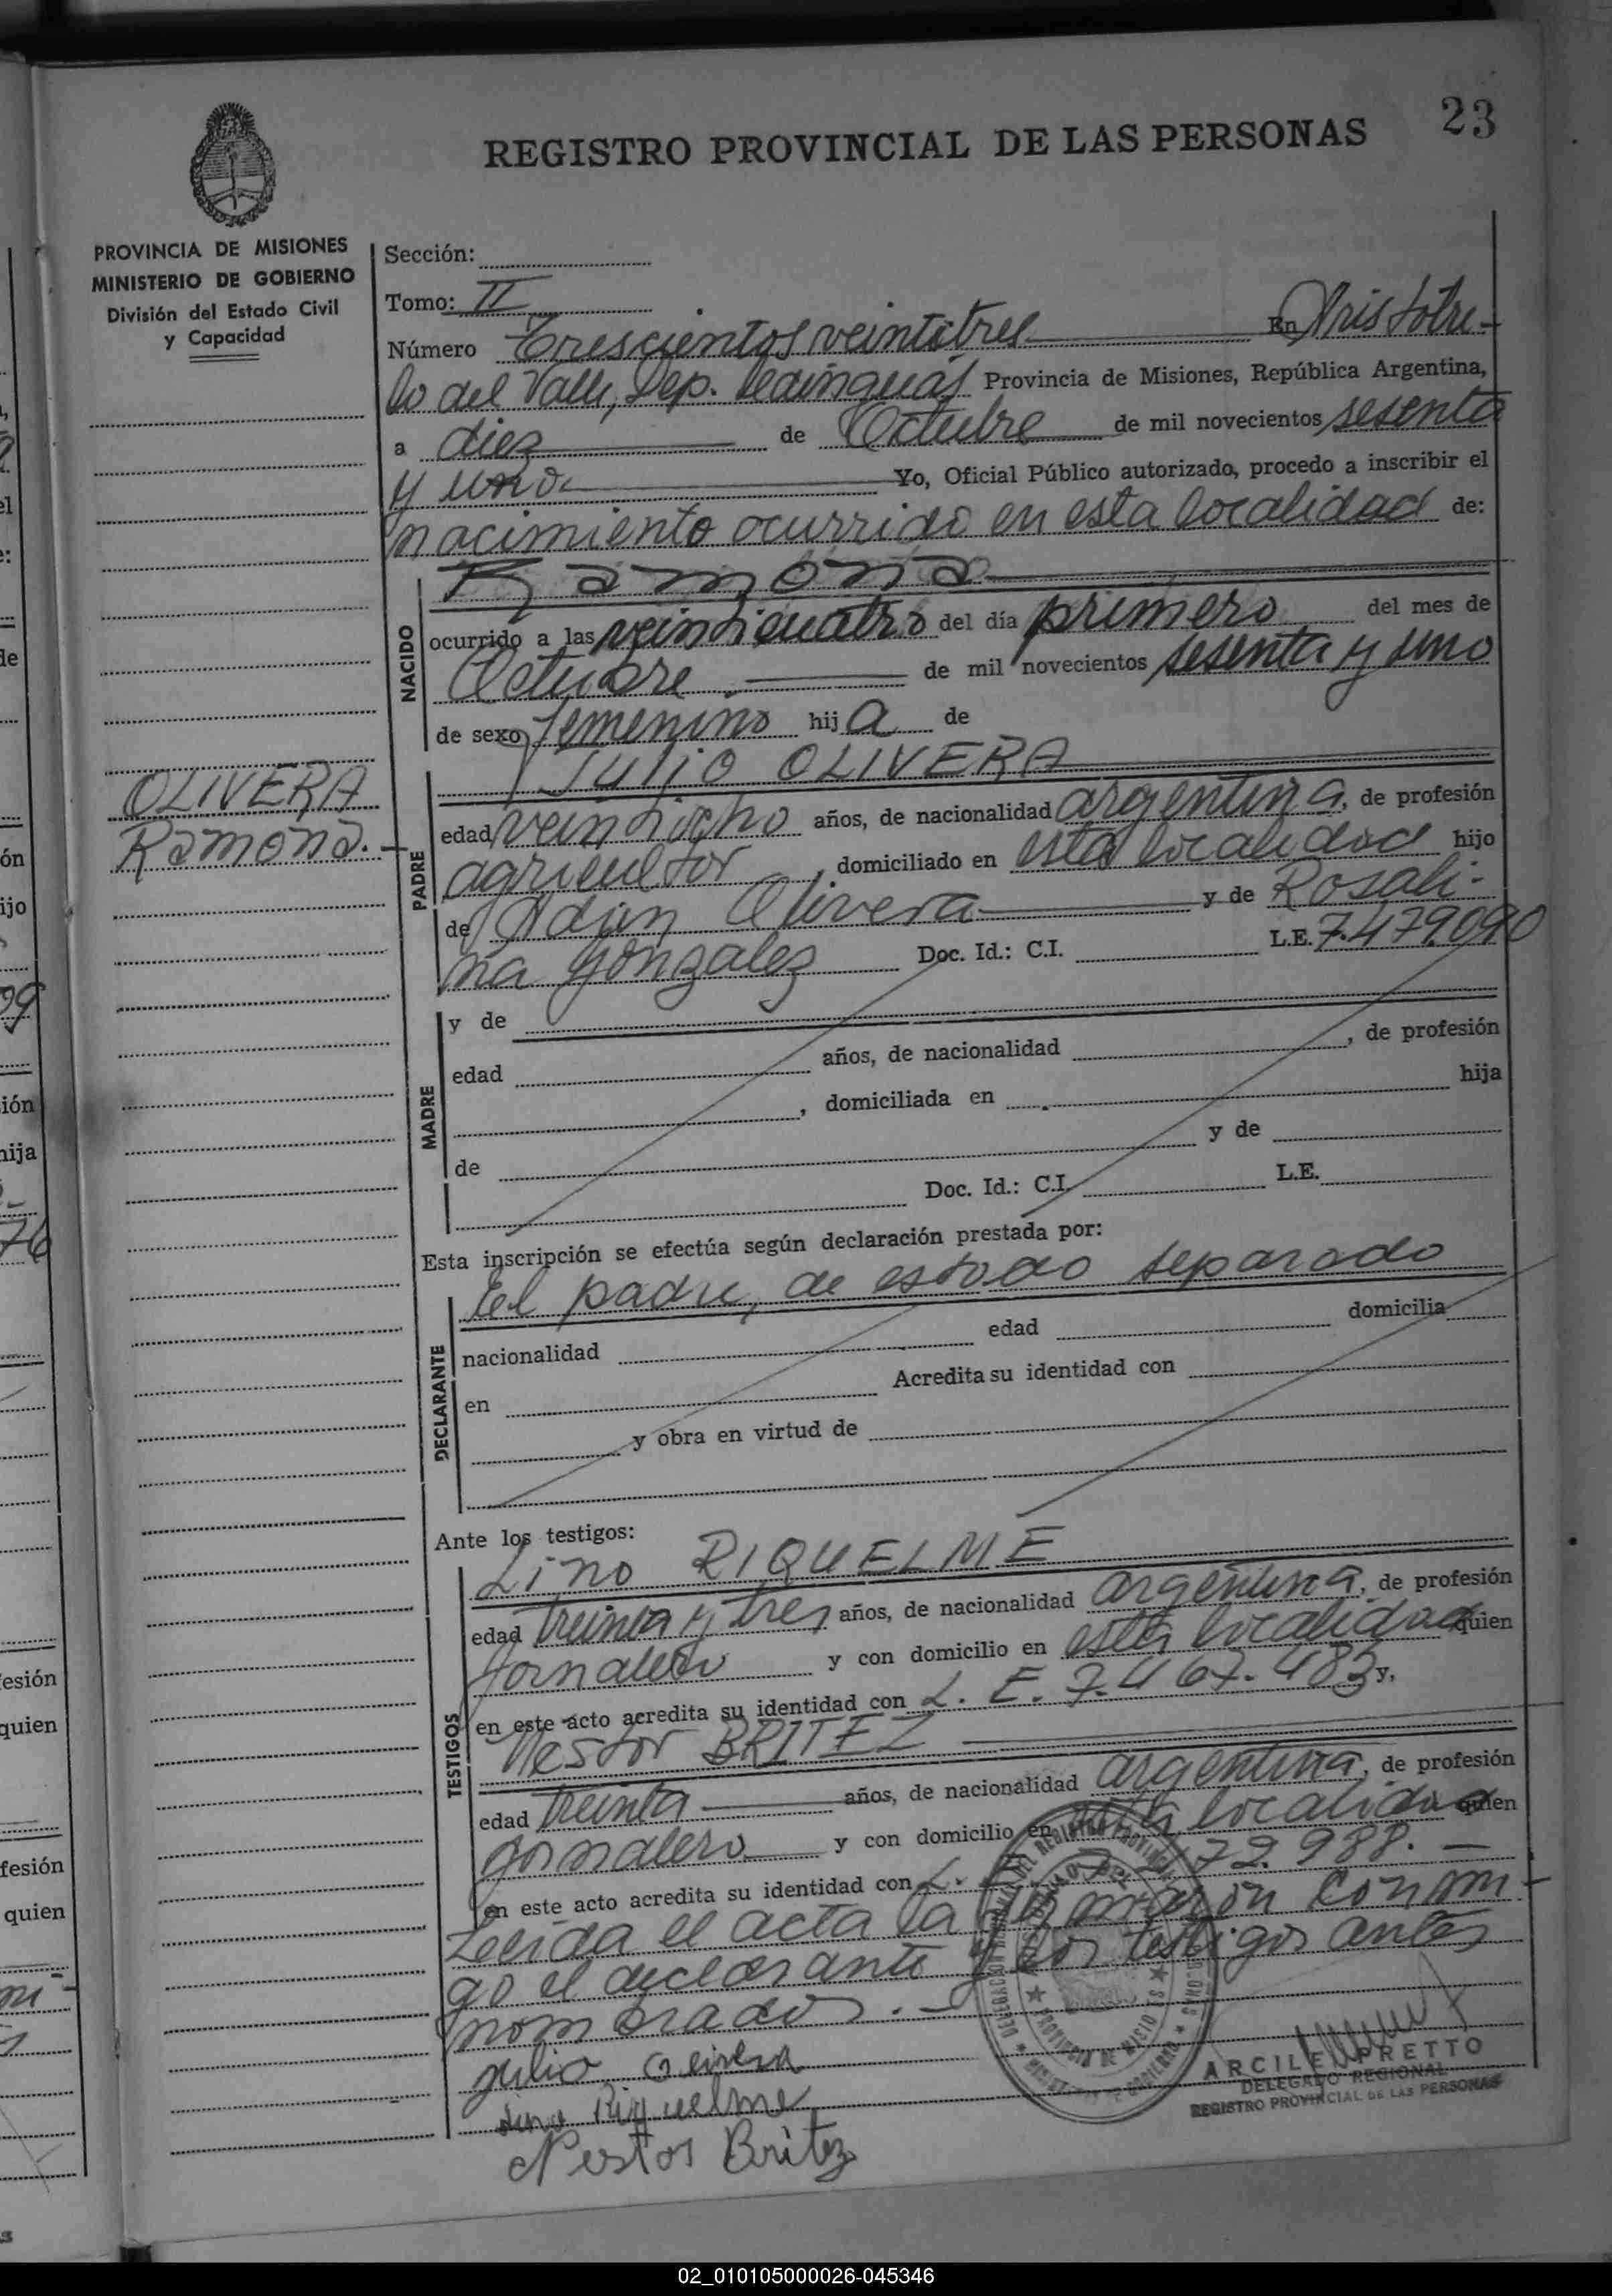 23
REGISTRO PROVINCIAL DE LAS PERSONAS
PROVINCIA DE MISIONES
MINISTERIO DE GOBIERNO
División del Estado Civil
y Capacidad
Sección:
Tomo: II
Número Trescientos veintitres En Aristóbu-
lo del Valle, Dep. Provincia de Misiones, República Argentina,
a diez de Octubre de mil novecientos sesenta
y uno Yo, Oficial Público autorizado, procedo a inscribir el
nacimiento ocurrido en esta localidad de:
NACIDO
Ramona
ocurrido a las veinticuatro del día primero del mes de
Octubre de mil novecientos sesenta y uno
de sexo femenino hija de
OLIVERA
Ramona.
PADRE
Julio OLIVERA
edad veintiocho años, de nacionalidad argentina, de profesión
agricultor, domiciliado en esta localidad hijo
de Adan Olivera y de Rosali-
na Gonzalez Doc. Id.: C.I. L.E. 7.479.090
MADRE
y de
edad años, de nacionalidad , de profesión
, domiciliada en hija
de y de
Doc. Id.: C.I. L.E.
Esta inscripción se efectúa según declaración prestada por:
DECLARANTE
El padre, de estado separado
nacionalidad edad domicilia
en Acredita su identidad con
y obra en virtud de
Ante los testigos:
TESTIGOS
Lino RIQUELME
edad treinta y tres años, de nacionalidad argentina, de profesión
jornalero y con domicilio en esta localidad quien
en este acto acredita su identidad con L. E. 7.467.483 y,
Nestor BRITEZ
edad treinta años, de nacionalidad argentina, de profesión
jornalero y con domicilio en esta localidad quien
en este acto acredita su identidad con L. E. 72.988.
Leída el acta la firmaron conmi-
go el declarante y los testigos antes
nombrados.
Julio Olivera
Lino Riquelme
Nestor Britez
ARCILE PRETTO
DELEGADO REGIONAL
REGISTRO PROVINCIAL DE LAS PERSONAS
02_010105000026-045346